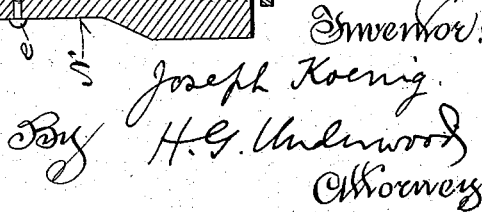 Inventor:
e N
Joseph Koenig.
By H. G. Underwood
Attorney